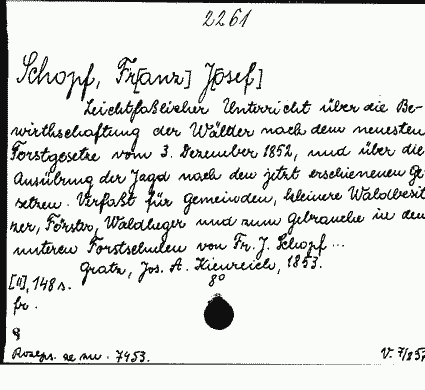 2261
Schopf, Fr[anz] J[osef]
Leichtfaßlicher Unterricht über die Be-
wirthschaftung der Wälder nach dem neuesten
Forstgesetze vom 3. Dezember 1852, und über die
Ausübung der Jagd nach den jetzt erschienenen Ge
setzen. Verfaßt für gemeinden, kleinere Waldbesit
zer, Förster, Waldheger und zum gebrauche in den
unteren Forstschulen von Fr. J. Schopf ...
Gratz, Jos. A. Kienreich, 1853.
[II], 148 s. 8°
fr.
Rozsps. se sv. 7453. V. 7/85